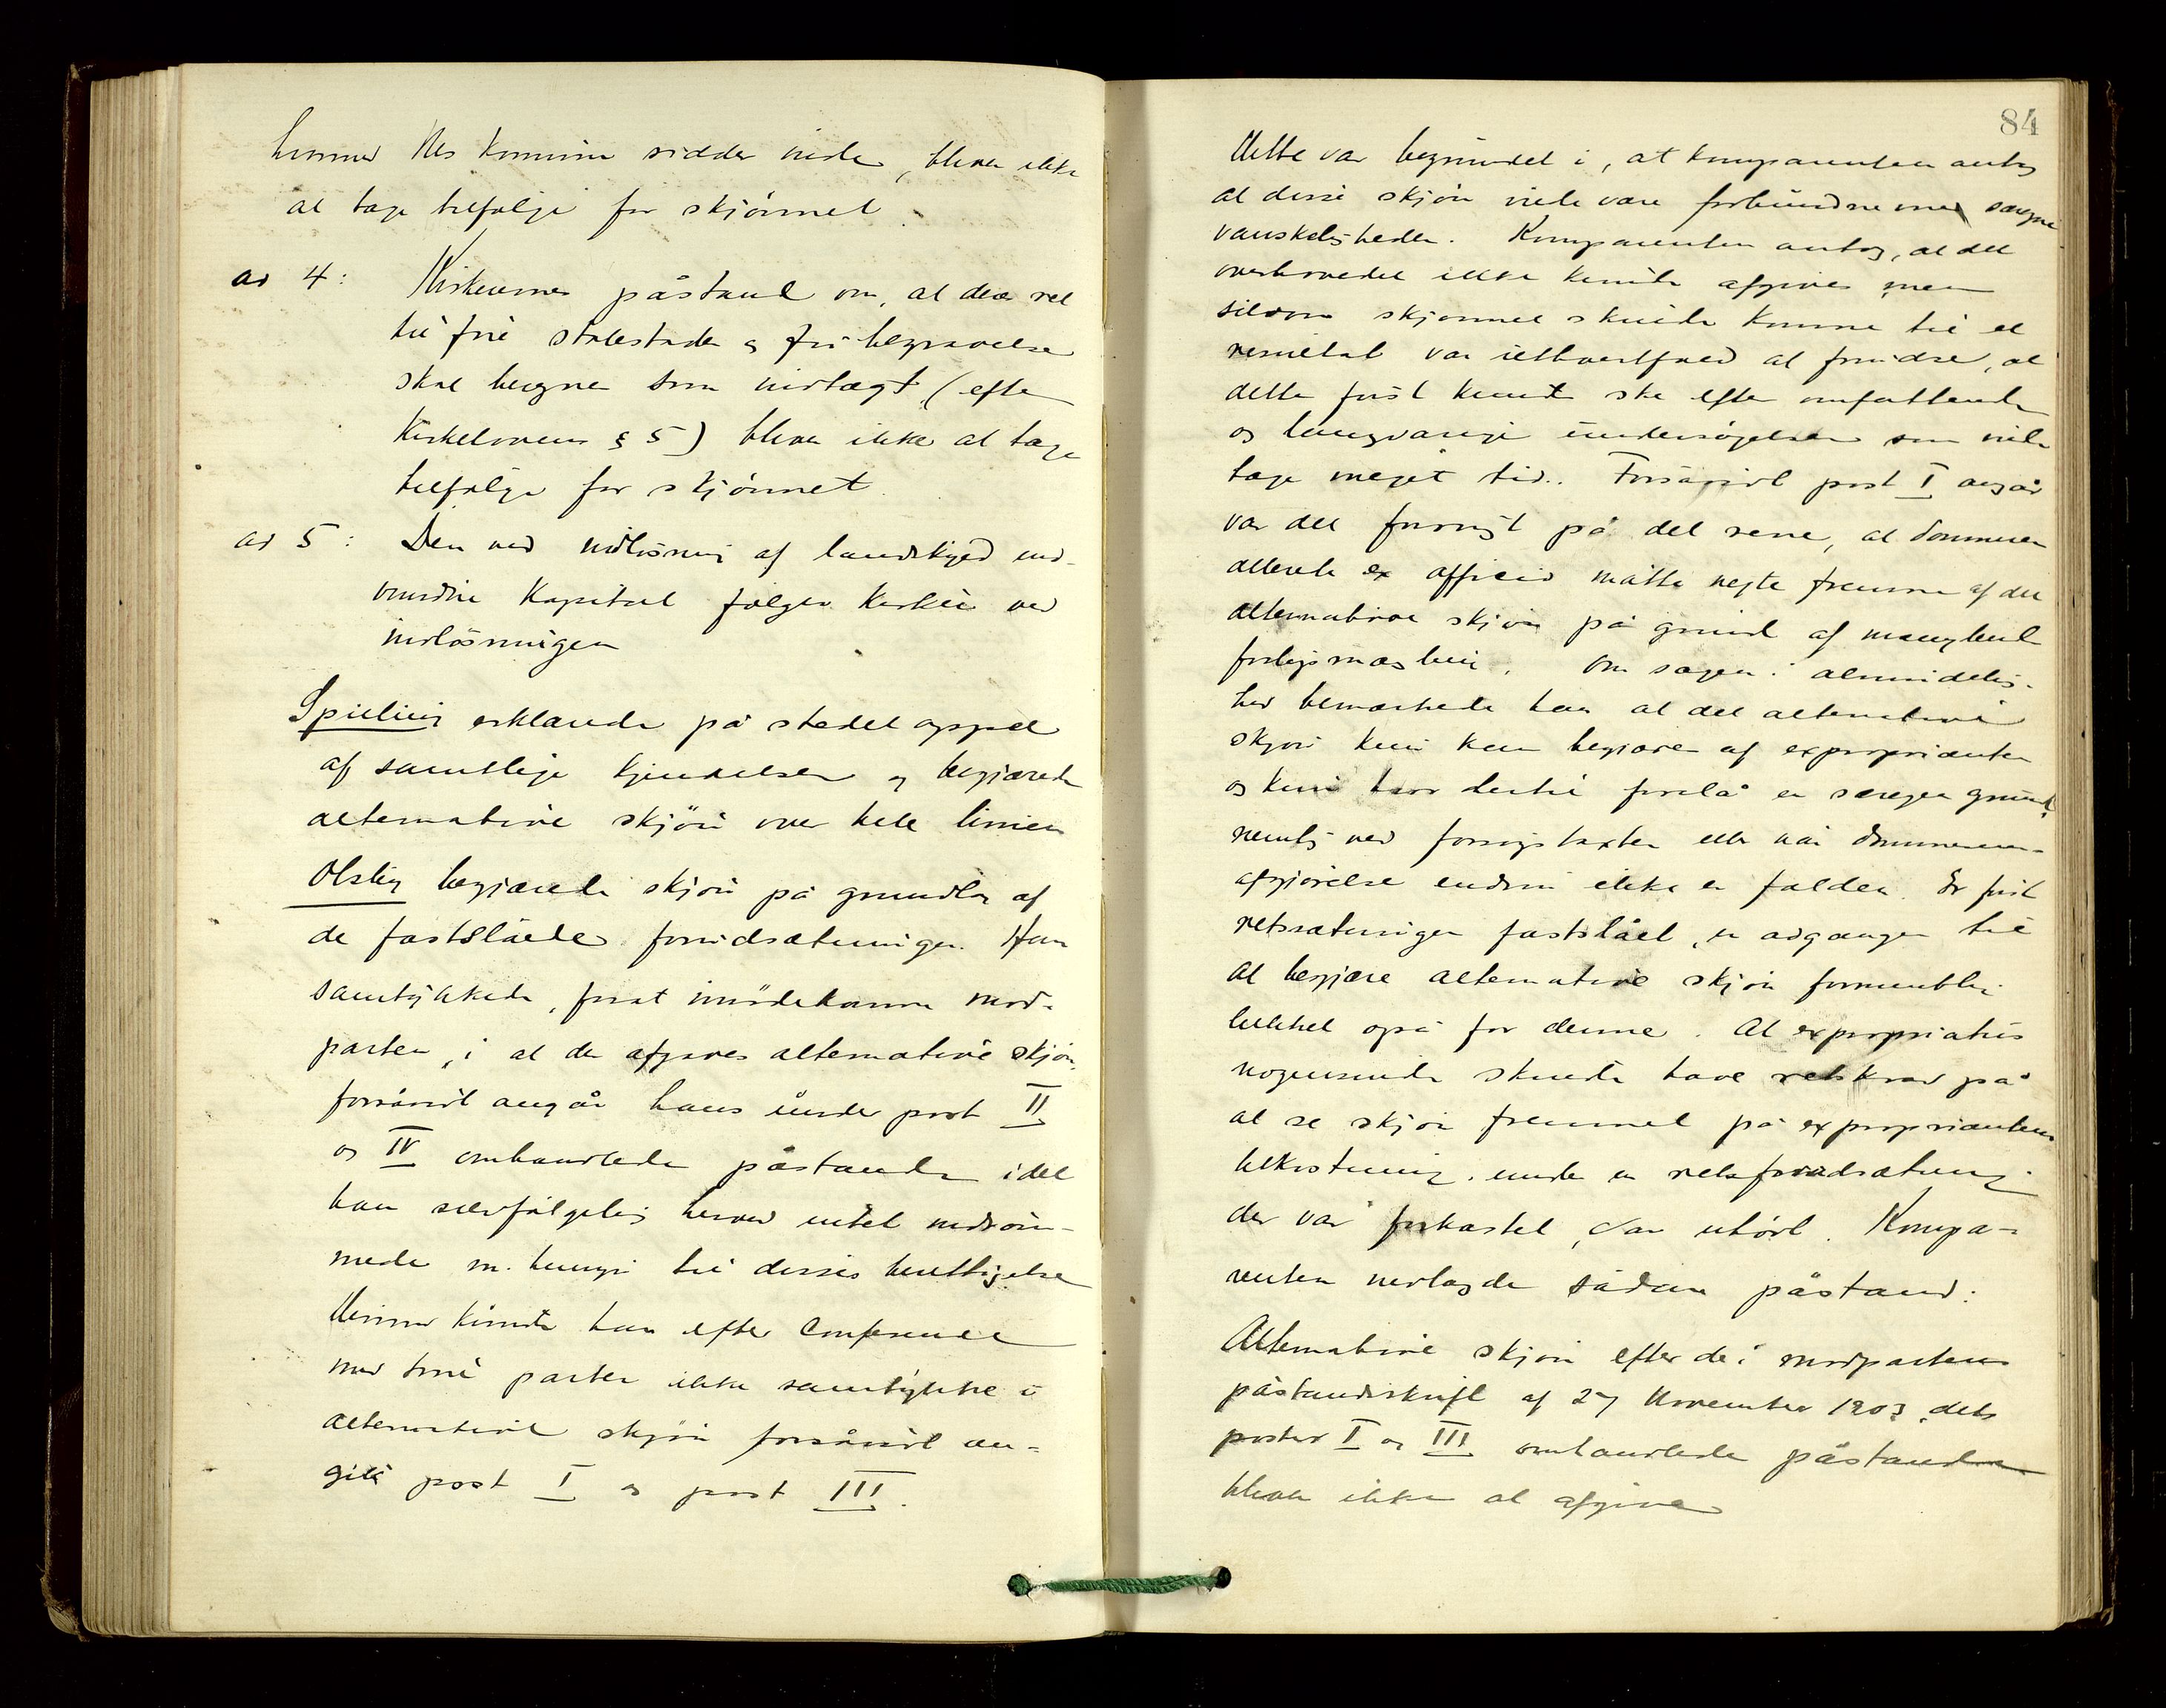 hvorved Nes kommune sidder inde, bliver ikke
at tage tilfølge for skjønnet.
ad 4: Kirkeiernes påstand om, at den ret
til frie stolestader og fri begravelse
skal beregnes som indtægt (efter
Kirkelovens § 5) bliver ikke at tage
tilfølge for skjønnet.
ad 5: Den ved indløsning af landskyld ind-
vundne Kapital følger kirken ved
indløsningen
Spieling erklærede på stedet appel
af samtlige kjendelser og begjærede
alternative skjøn over hele linien
Olsby begjærede skjøn på grundlag af
de fastslåede forudsætninger. Han
samtykkede, forat imødekomme mod-
parten, i at der afgaves alternative skjøn,
forsåvidt angår hans under post II
og IV omhandlede påstande idet
han selvfølgelig herved intet indrøm-
mede m. hensyn til disses berettigelse
Derimod kunde han efter Conference
med sine parter ikke samtykke i
alternativt skjøn forsåvidt an-
gik post I og post III.
84
Dette var begrundet i, at komparenten antog
at disse skjøn vilde være forbundne med særegne
vanskeligheder. Komparenten antog, at det
overhovedet ikke kunde afgives men
selvom skjønnet skulde komme til et
resultat var ialfald at forudse, at
dette først kunde ske efter omfattende
og langvarige undersøgelser som vilde
tage meget tid. Forsåvidt post I angår
var det forøvrigt på det rene, at dommeren
allerede ex officio måtte negte fremme af det
alternative skjøn på grund af manglende
forligsmægling. Om sagen i almindelig-
hed bemærkede han at det alternative
skjøn kun kan begjæres af exproprianten
og kun hvor dertil forelå en særegen grund,
nemlig ved forsøgstaxter eller når dommerens
afgjørelse endnu ikke er falden. Er først
retssætningen fastslået, er adgangen til
at begjære alternative skjøn formentlig
lukket også for denne. At expropriatus
nogensinde skulde have retskrav på
at se skjøn fremmet på expropriantens
bekostning under en retsforudsætning
der var forkastet, var uhørt. Kompa-
renten nedlagde sådan påstand:
Alternative skjøn efter de i modpartens
påstandsskrift af 27 November 1903, dets
poster I og III omhandlede påstande
bliver ikke at afgive